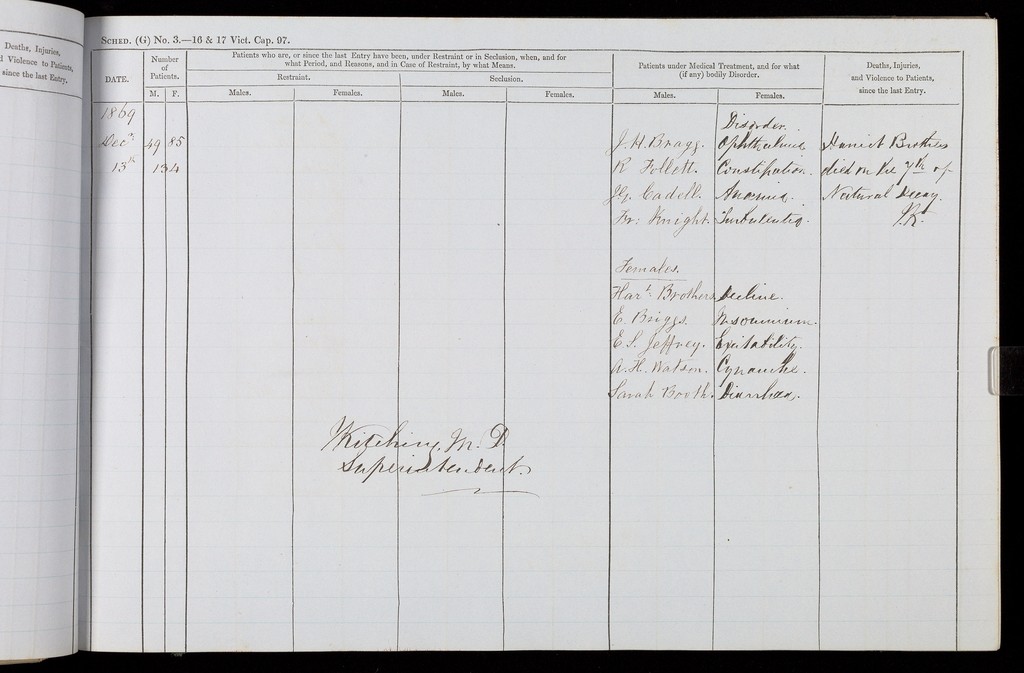 Deaths, Injuries,
d Violence to Patients,
since the last Entry.
SCHED. (G) No. 3.—16 & 17 Vict. Cap. 97.
DATE.
Number
of
Patients.
M. F.
Patients who are, or since the last Entry have been, under Restraint or in Seclusion, when, and for
what Period, and Reasons, and in Case of Restraint, by what Means.
Restraint. Seclusion.
Males. Females. Males. Females.
Patients under Medical Treatment, and for what
(if any) bodily Disorder.
Males. Females.
Deaths, Injuries,
and Violence to Patients,
since the last Entry.
1869
Disorder.
Decr 49 85 J. H. Bragg. Ophthalmia Harriet Brothers
13th 134 R Follett. Constipation. died on the 7th of
Cadell. Anaemia. Natural Decay.
Fr: Knight. Turbulentia
Females.
Hart Brothers Decline.
E. Briggs. Insomnium.
E. S. Jeffrey. Excitability.
A. H. Watson. Cynanche.
Sarah Booth. Diarrhea.
Kitching, M. D.
Superintendent.